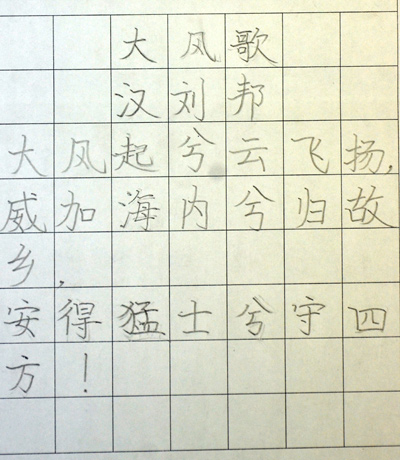 大风歌
汉刘邦
大风起兮云飞扬,
威加海内兮归故
乡,
安得猛士兮守四
方!